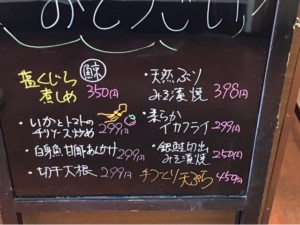 おとうさい
塩くじら
煮しめ 350円
・いかとトマトの
チリソース炒め 299円
・白身魚甘酢あんかけ 299円
・切干大根 299円
・天然ぶり
みそ漬焼 398円
・柔らか
イカフライ 299円
・銀鮭切出し
みそ漬焼 250円
手づくり天ぷら 450円